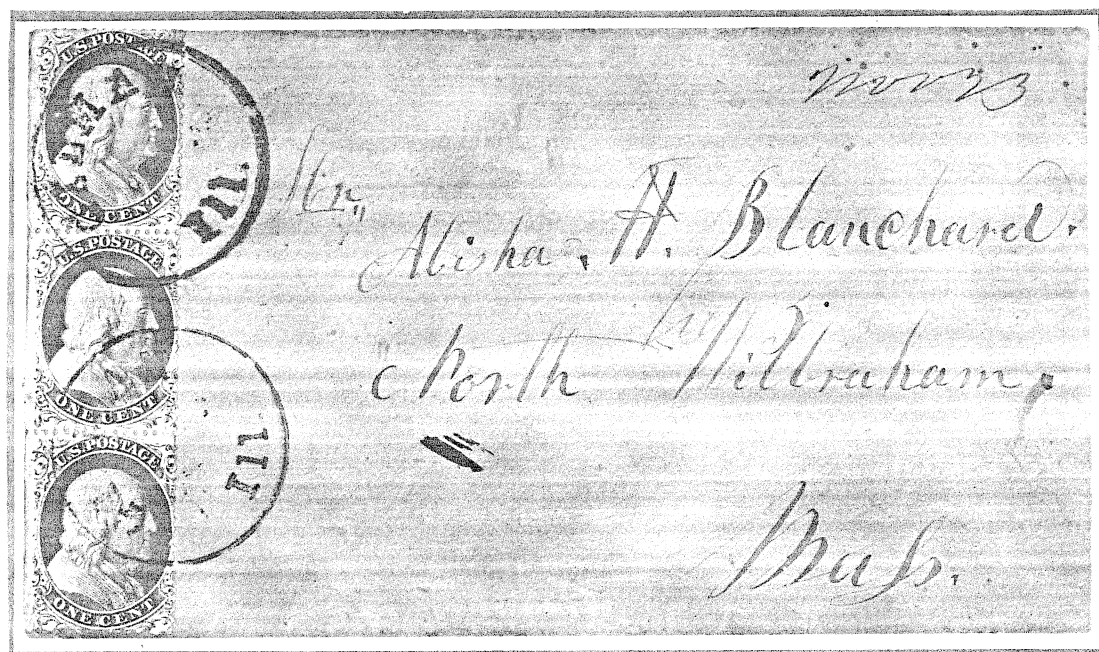 U.S. POSTAGE
ONE CENT
U.S. POSTAGE
ONE CENT
U.S. POSTAGE
ONE CENT
ILL.
ILL
Nov 23
Mr,,
Alisha. H. Blanchard.
North Wilbraham,
Mass.